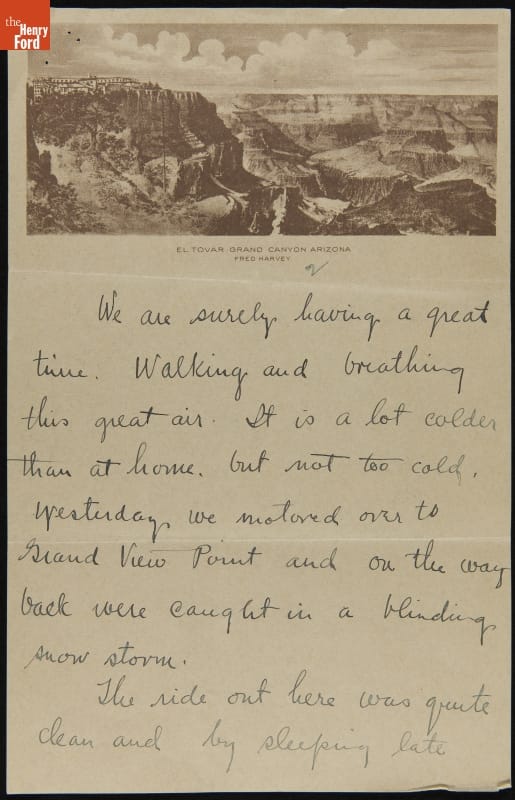 the
Henry
Ford
EL TOVAR GRAND CANYON ARIZONA
FRED HARVEY
2
We are surely having a great
time. Walking and breathing
this great air. It is a lot colder
than at home. but not too cold.
Yesterday we motored over to
Grand View Point and on the way
back were caught in a blinding
snow storm.
The ride out here was quite
clean and by sleeping late